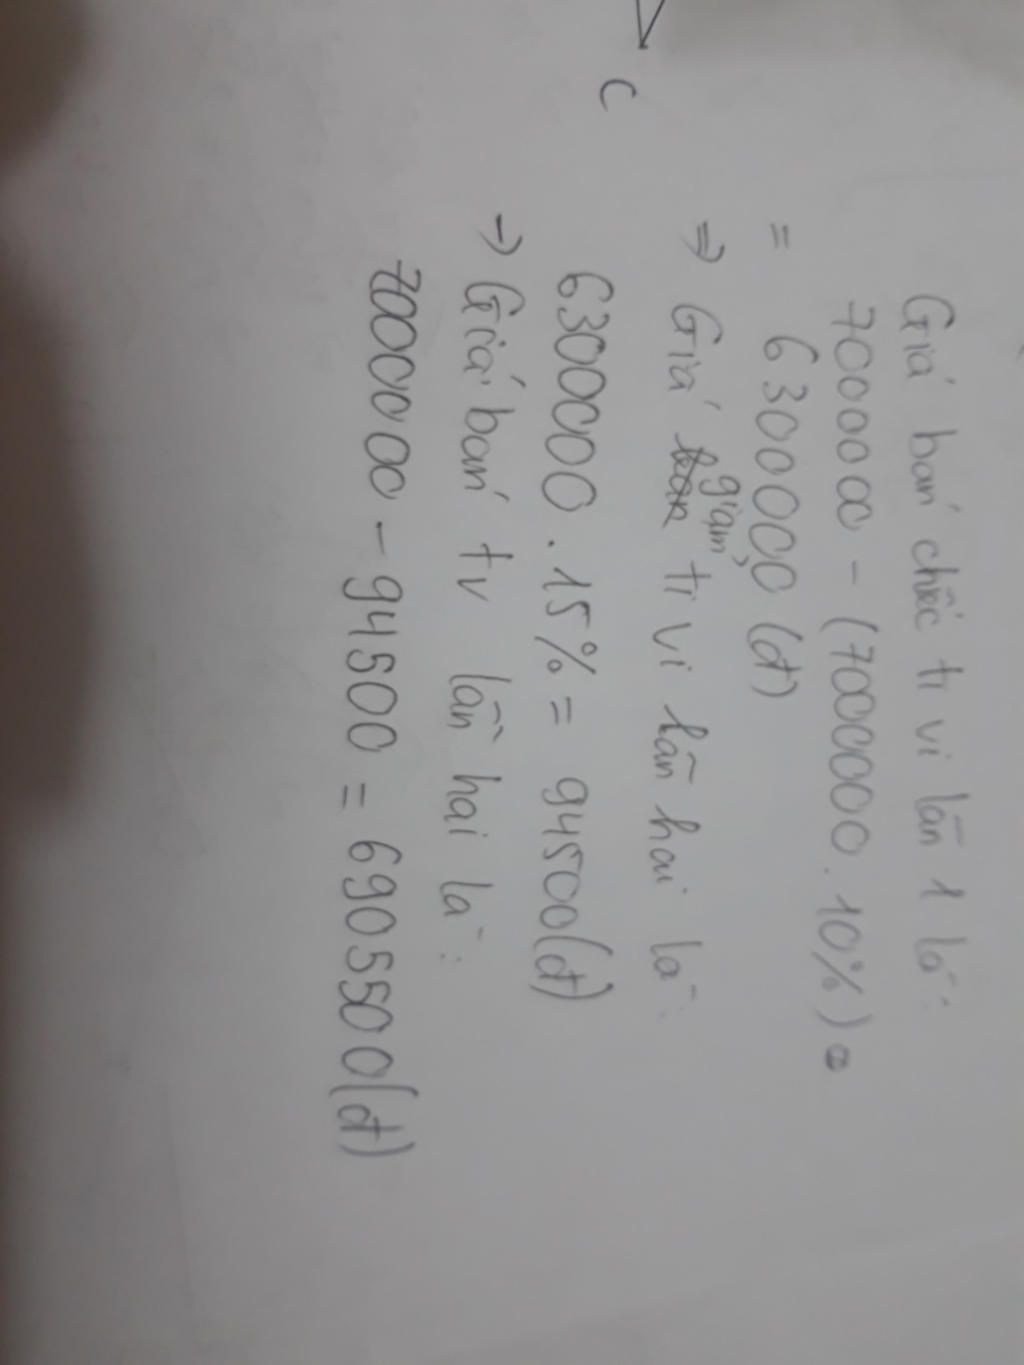 C
Giá bán chiếc ti vi lần 1 là:
7000000 - (7000000 . 10%) =
= 6300000 (đ)
=> Giá giảm ti vi lần hai là:
6300000 . 15% = 94500 (đ)
-> Giá bán tv lần hai là:
7000000 - 94500 = 690550 0 (đ)